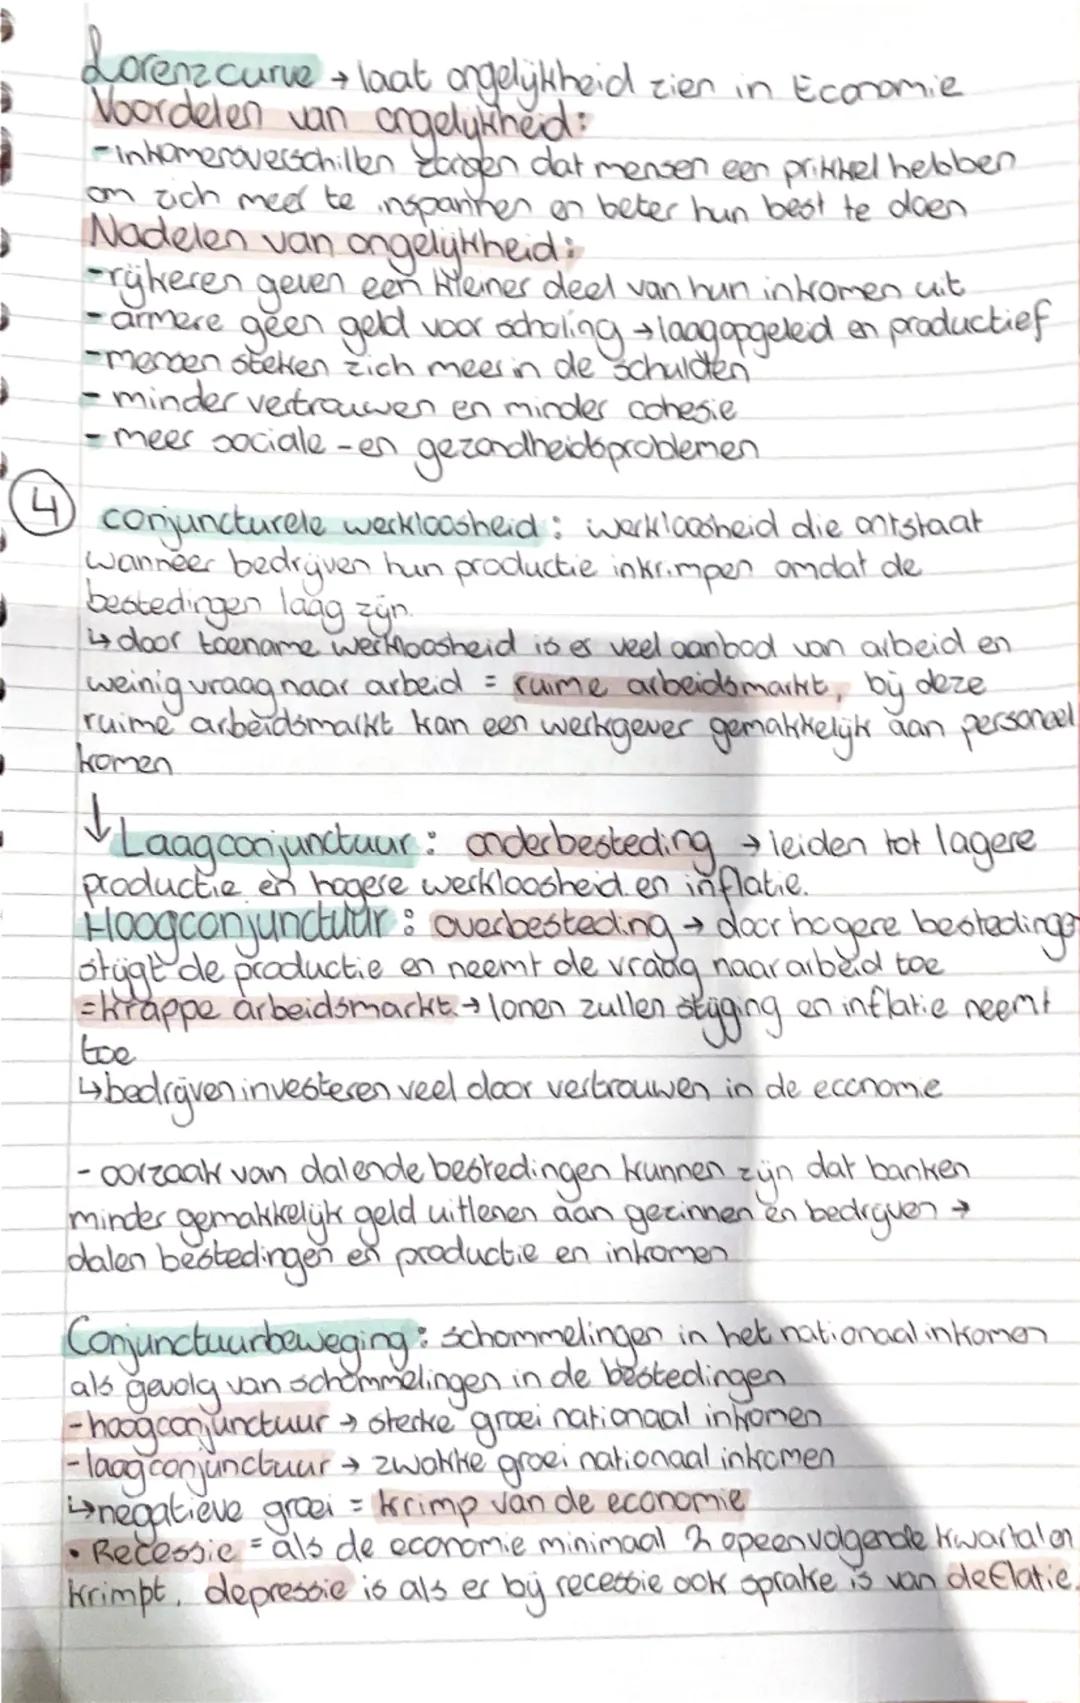 Lorenzcurve → laat ongelijkheid zien in Economie
Voordelen van ongelijkheid:
- inkomensverschillen zorgen dat mensen een prikkel hebben
om zich meer te inspannen en beter hun best te doen
Nadelen van ongelijkheid:
- rijkeren geven een kleiner deel van hun inkomen uit
- armere geen geld voor scholing → laagopgeleid en productief
- mensen steken zich meer in de schulden
- minder vertrouwen en minder cohesie
- meer sociale - en gezondheidsproblemen
4 conjuncturele werkloosheid: werkloosheid die ontstaat
wanneer bedrijven hun productie inkrimpen omdat de
bestedingen laag zijn.
↳ door toename werkloosheid is er veel aanbod van arbeid en
weinig vraag naar arbeid = ruime arbeidsmarkt, bij deze
ruime arbeidsmarkt kan een werkgever gemakkelijk aan personeel
komen
↓ Laagconjunctuur: onderbesteding → leiden tot lagere
productie en hogere werkloosheid en inflatie.
Hoogconjunctuur: overbesteding → door hogere bestedingen
stijgt de productie en neemt de vraag naar arbeid toe
= krappe arbeidsmarkt. → lonen zullen stijging en inflatie neemt
toe
↳ bedrijven investeren veel door vertrouwen in de economie
- oorzaak van dalende bestedingen kunnen zijn dat banken
minder gemakkelijk geld uitlenen aan gezinnen en bedrijven →
dalen bestedingen en productie en inkomen
Conjunctuurbeweging: schommelingen in het nationaal inkomen
als gevolg van schommelingen in de bestedingen
- hoogconjunctuur → sterke groei nationaal inkomen
- laagconjunctuur → zwakke groei nationaal inkomen
↳ negatieve groei = krimp van de economie
• Recessie = als de economie minimaal 2 opeenvolgende kwartalen
krimpt, depressie is als er bij recessie ook sprake is van deflatie.